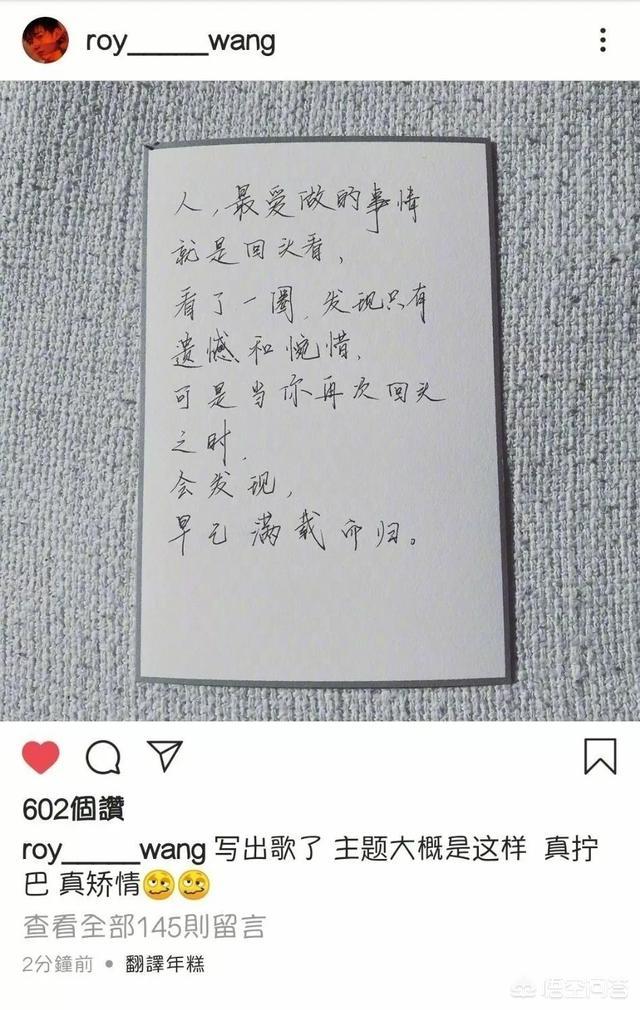 roy_____wang
人，最爱做的事情
就是回头看，
看了一圈，发现只有
遗憾和惋惜，
可是当你再次回头
之时，
会发现，
早已满载而归。
602個讚
roy_____wang 写出歌了 主题大概是这样 真拧
巴 真矫情🥴🥴
查看全部145則留言
2分鐘前 • 翻譯年糕
悟空问答